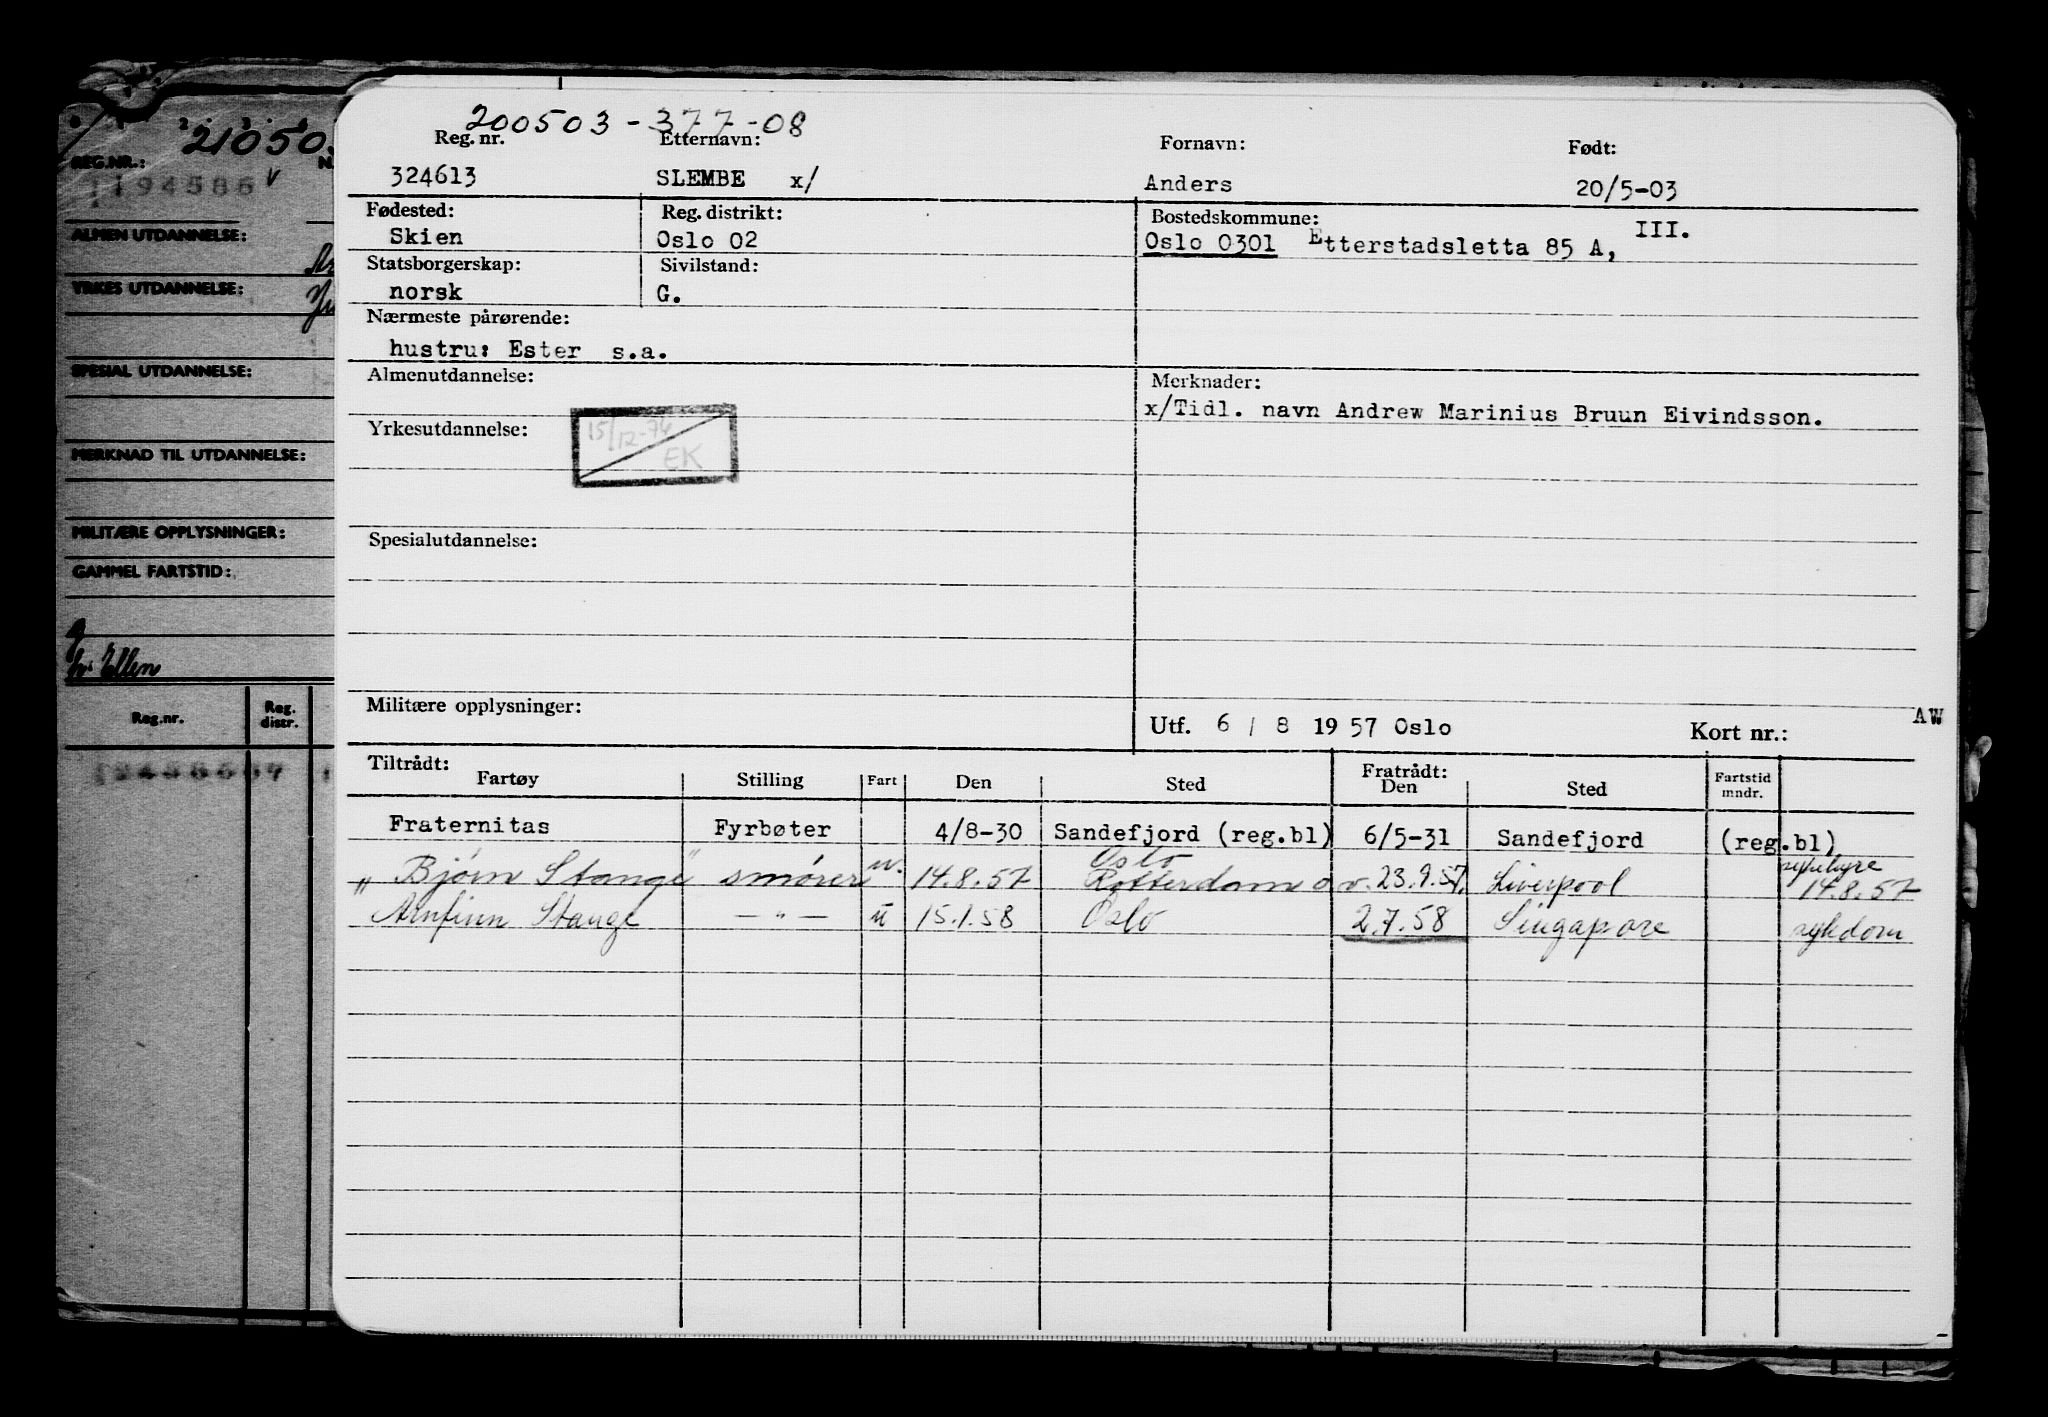 200503-377-08
Reg. nr. Etternavn: Fornavn: Født:
324613 SLEMBE x/ Anders 20/5-03
Fødested: Reg. distrikt: Bostedskommune:
Skien Oslo 02 Oslo 0301 Etterstadsletta 85 A, III.
Statsborgerskap: Sivilstand:
norsk G.
Nærmeste pårørende:
hustru: Ester s.a.
Almenutdannelse: Merknader:
x/Tidl. navn Andrew Marinius Bruun Eivindsson.
Yrkesutdannelse:
15/12-74
EK
Spesialutdannelse:
Militære opplysninger:
Utf. 6 / 8 1957 Oslo Kort nr.: AW
Tiltrådt: Fratrådt:
Fartøy Stilling Fart Den Sted Den Sted Fartstid mndr.
Fraternitas Fyrbøter 4/8-30 Sandefjord (reg.bl) 6/5-31 Sandefjord (reg.bl)
"Bjørn Stange" smører u. 14.8.57 Oslo Rotterdam 23.9.57. Liverpool 14.8.57
Arnfinn Stange —"— u 15.1.58 Oslo 2.7.58 Singapore sykdom
21050
REG.NR.:
1194586
ALMEN UTDANNELSE:
YRKES UTDANNELSE:
SPESIAL UTDANNELSE:
MERKNAD TIL UTDANNELSE:
MILITÆRE OPPLYSNINGER:
GAMMEL FARTSTID:
g
Ellen
Reg.nr. Reg. distr.